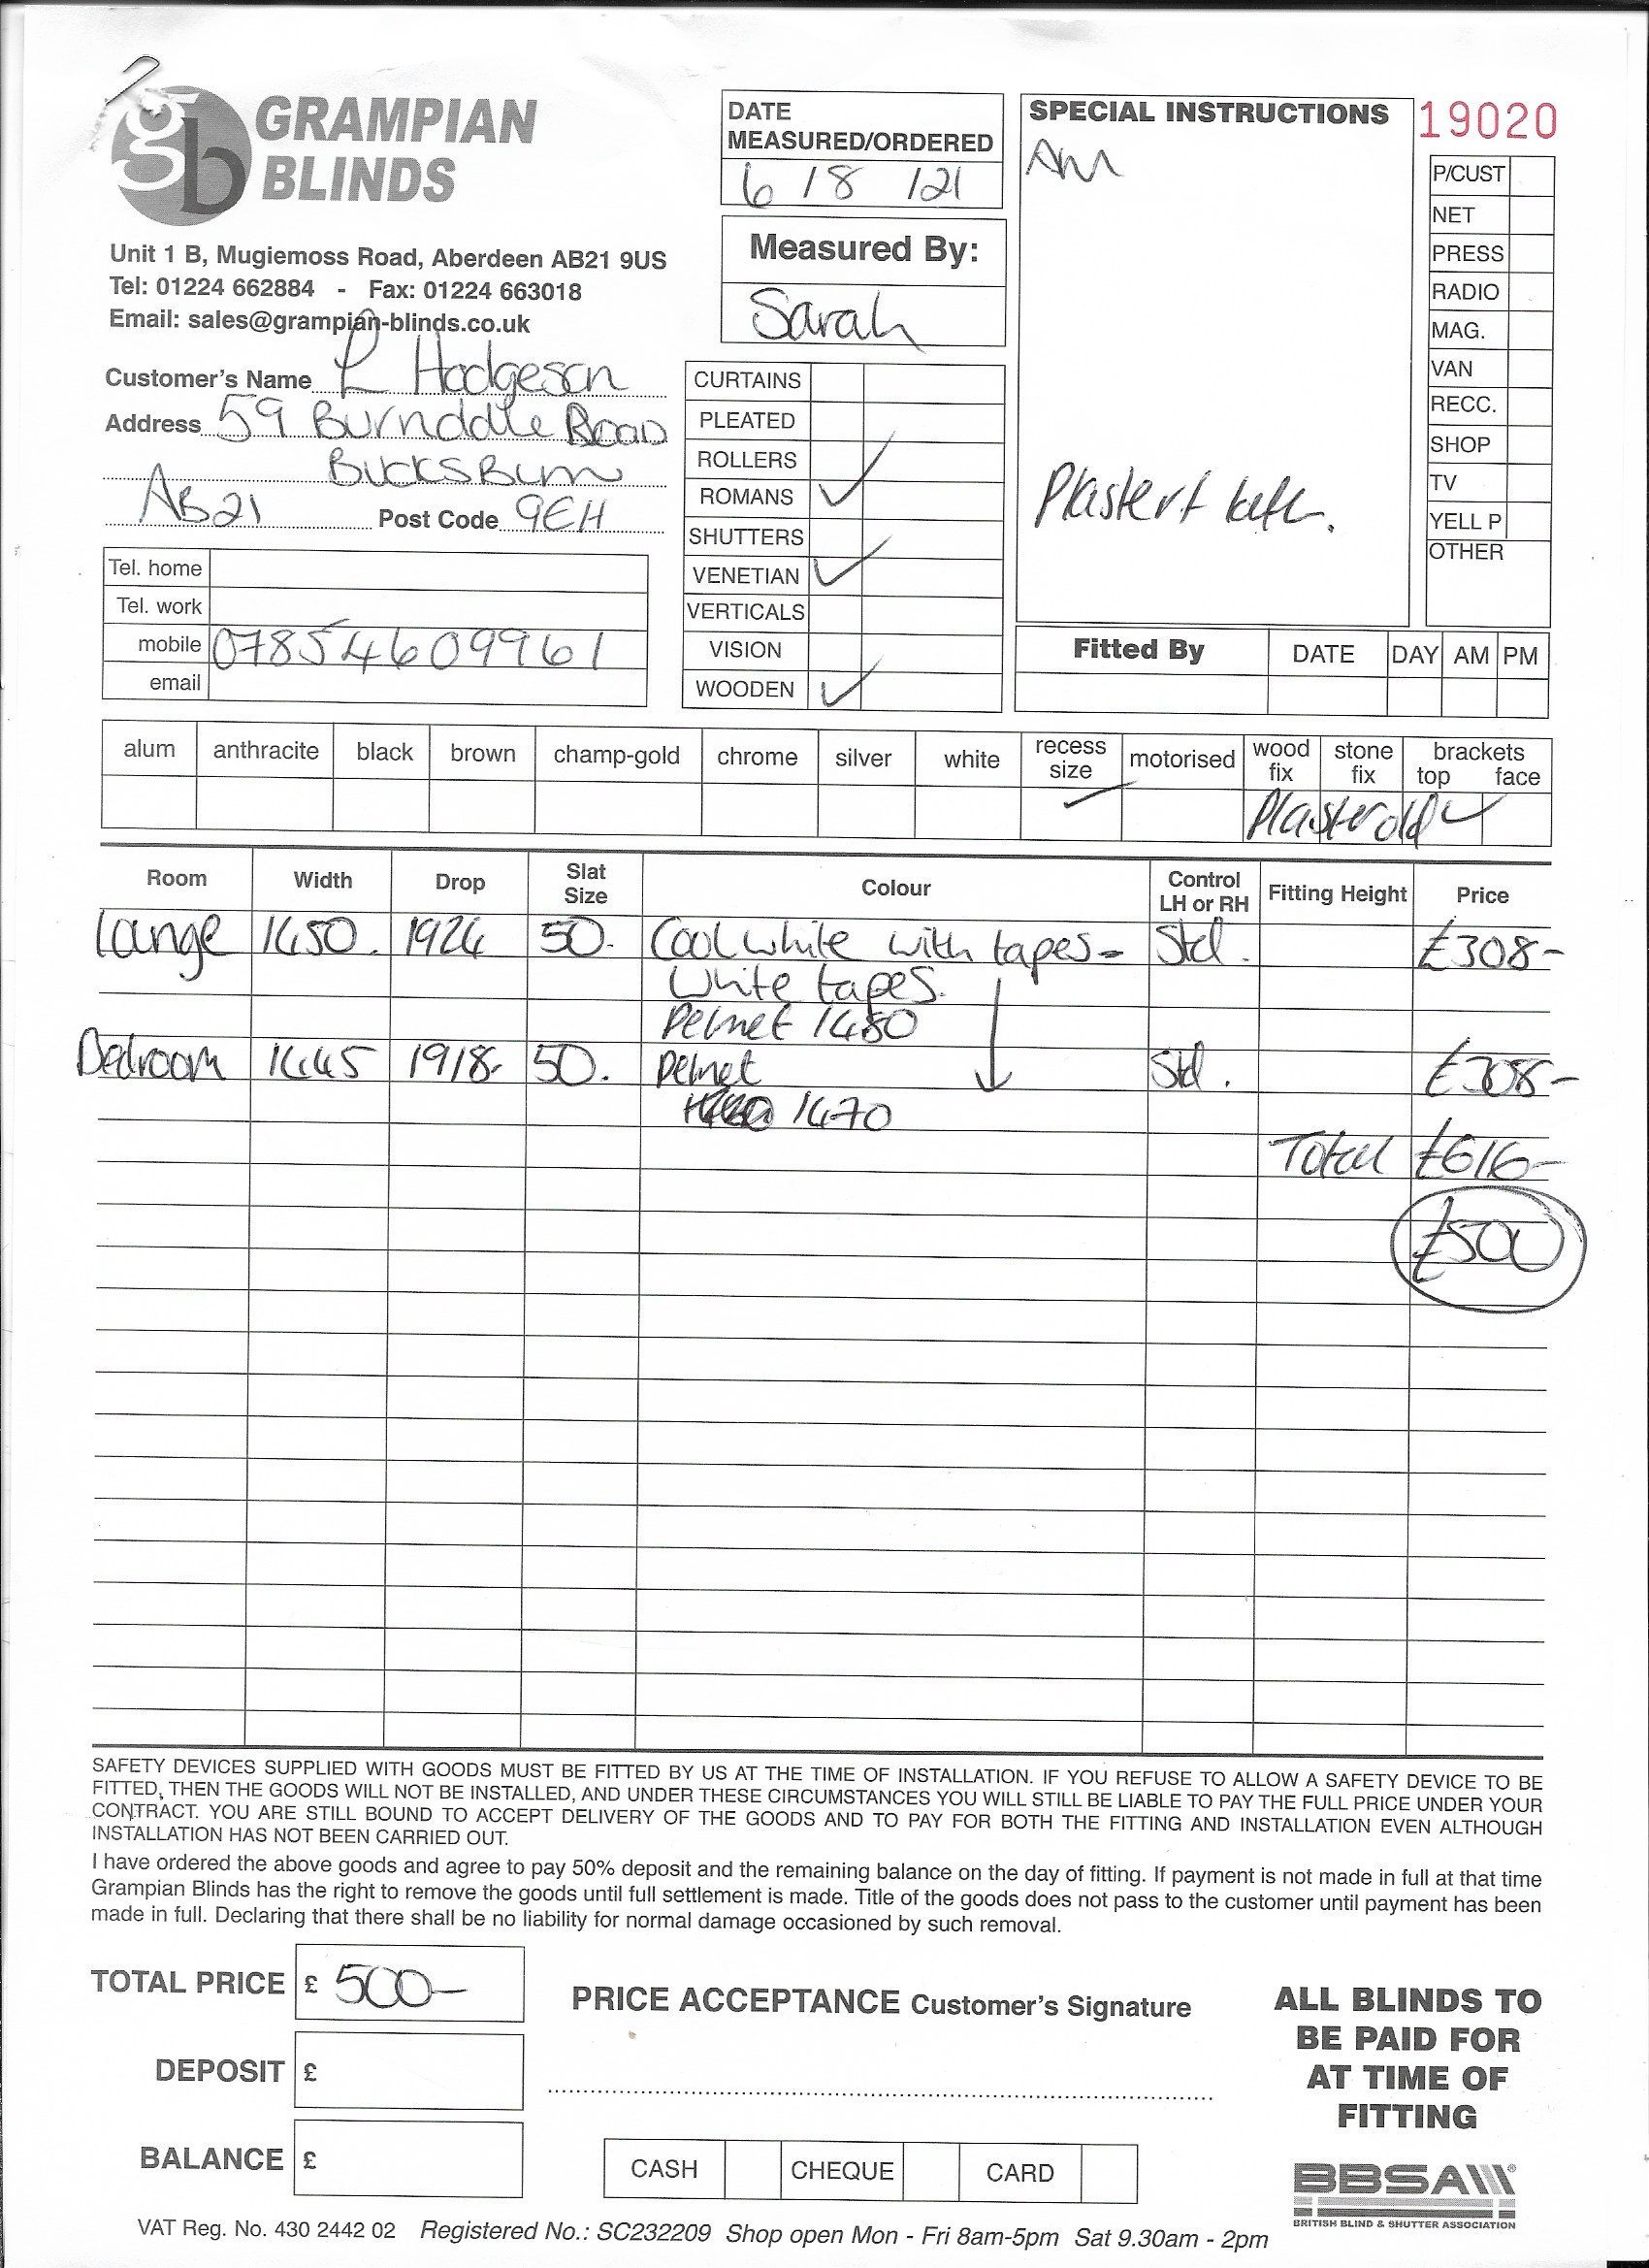 gb GRAMPIAN
BLINDS
Unit 1 B, Mugiemoss Road, Aberdeen AB21 9US
Tel: 01224 662884 - Fax: 01224 663018
Email: sales@grampian-blinds.co.uk
DATE
MEASURED/ORDERED
6 / 8 /21
Measured By:
Sarah
SPECIAL INSTRUCTIONS
AM
Plaster + lath.
19020
P/CUST
NET
PRESS
RADIO
MAG.
VAN
RECC.
SHOP
TV
YELL P
OTHER
Customer's Name Hodgeson
Address 59 Burnddle Road
BucksBurn
AB21 Post Code 9EH
Tel. home
Tel. work
mobile 07854609961
email
CURTAINS
PLEATED
ROLLERS
ROMANS ✓
SHUTTERS
VENETIAN ✓
VERTICALS
VISION
WOODEN ✓
Fitted By DATE DAY AM PM
alum anthracite black brown champ-gold chrome silver white recess size motorised wood fix stone fix brackets top face
✓ Plaster old ✓
Room Width Drop Slat Size Colour Control LH or RH Fitting Height Price
Lounge 1450. 1924 50. Cool white with tapes- Std. £308-
White tapes.
Pelmet 1480
Bedroom 1445 1918- 50. Pelmet Std. £308-
1470
Total £616-
£500
SAFETY DEVICES SUPPLIED WITH GOODS MUST BE FITTED BY US AT THE TIME OF INSTALLATION. IF YOU REFUSE TO ALLOW A SAFETY DEVICE TO BE
FITTED, THEN THE GOODS WILL NOT BE INSTALLED, AND UNDER THESE CIRCUMSTANCES YOU WILL STILL BE LIABLE TO PAY THE FULL PRICE UNDER YOUR
CONTRACT. YOU ARE STILL BOUND TO ACCEPT DELIVERY OF THE GOODS AND TO PAY FOR BOTH THE FITTING AND INSTALLATION EVEN ALTHOUGH
INSTALLATION HAS NOT BEEN CARRIED OUT.
I have ordered the above goods and agree to pay 50% deposit and the remaining balance on the day of fitting. If payment is not made in full at that time
Grampian Blinds has the right to remove the goods until full settlement is made. Title of the goods does not pass to the customer until payment has been
made in full. Declaring that there shall be no liability for normal damage occasioned by such removal.
TOTAL PRICE £ 500-
DEPOSIT £
BALANCE £
PRICE ACCEPTANCE Customer's Signature
CASH CHEQUE CARD
ALL BLINDS TO
BE PAID FOR
AT TIME OF
FITTING
BBSA
BRITISH BLIND & SHUTTER ASSOCIATION
VAT Reg. No. 430 2442 02 Registered No.: SC232209 Shop open Mon - Fri 8am-5pm Sat 9.30am - 2pm